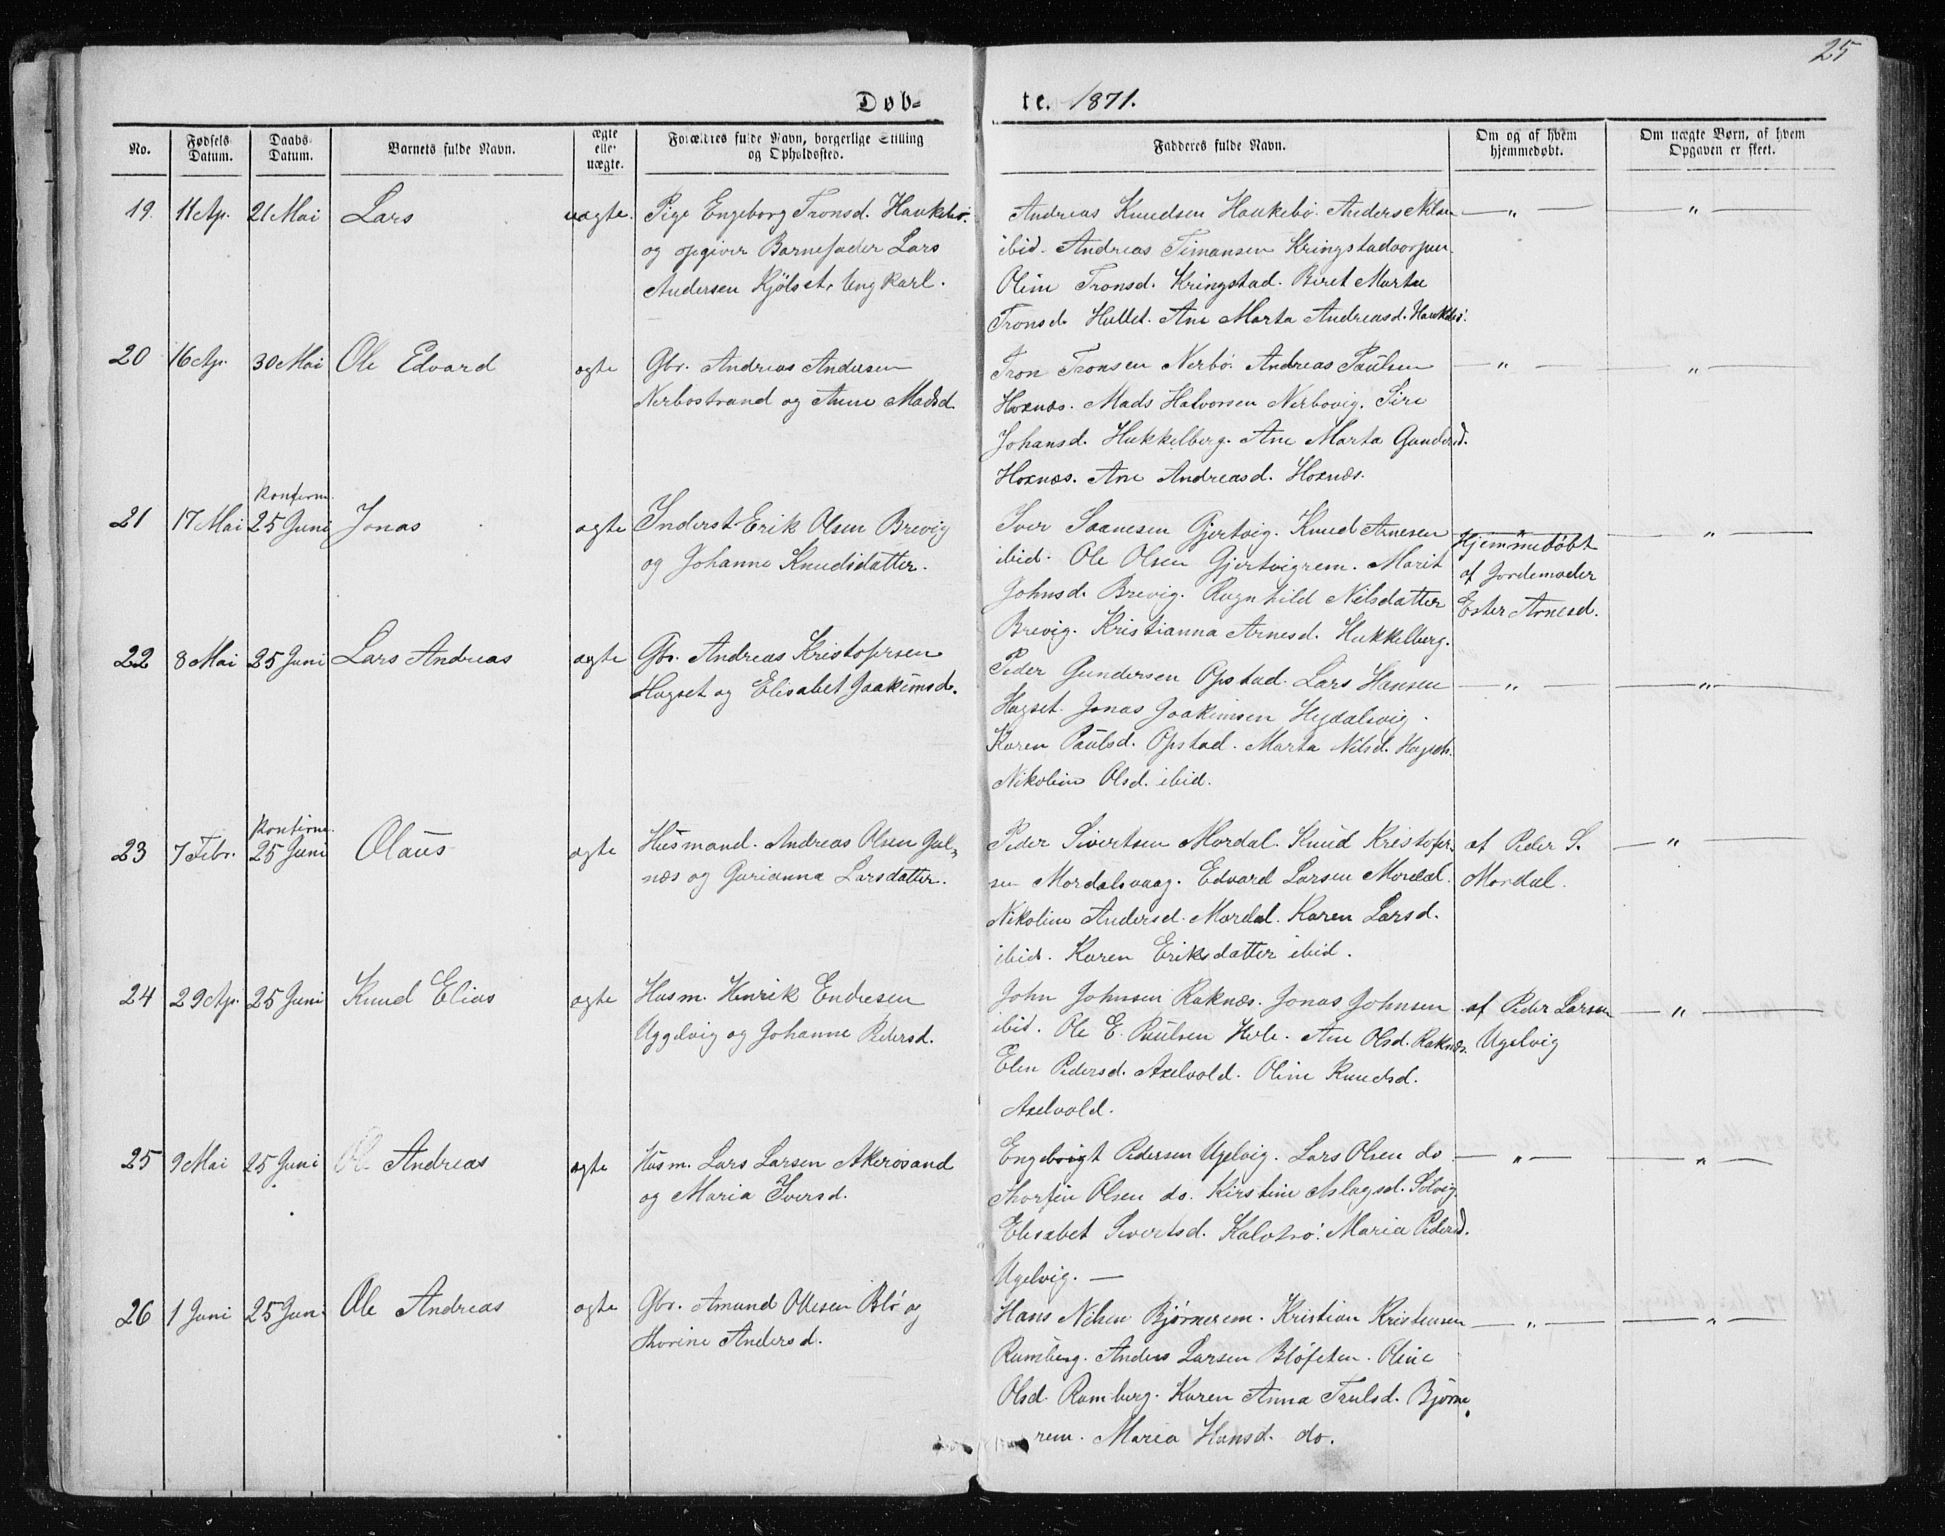 25
Døb- te. 1871.
No. Fødsels Datum. Daabs Datum. Barnets fulde Navn. ægte eller uægte. Forældres fulde Navn, borgerlige Stilling og Opholdssted. Fadderes fulde Navn. Om og af hvem hjemmedøbt. Om uægte Børn, af hvem Opgaven er skeet.
19. 11 Ap. 21 Mai Lars uægte. Pige Engeborg Tronsd. Haukebø.
og opgiver Barnefader Lars
Andersen Kjölset, Ungkarl.
Andreas Knudsen Haukebø. Anders
ibid. Andreas Timansen
Oline Tronsd. Kringstad. Beret Marta
Tronsd. Hullet. Ane Marta Andreasd. Haukebø.
— " — — " —
20 16 Ap. 30 Mai Ole Edvard ægte Gbr. Andreas Andersen
Nerbøstrand og Anne Madsd.
Tron Tronsen Nerbø. Andreas Paulsen
Hoxnæs. Mads Halvorsen Nerbøvig. Siri
Johansd. Hukkelberg. Ane Marta Gundersd.
Hoxnæs. Ane Andreasd. Hoxnæs.
— " — — " —
21 17 Mai Konferm. 25 Juni Jonas ægte Inderst Erik Olsen Brevig
og Johanne Knudsdatter.
Iver Saanesen Gjertvig. Knud Arnesen
ibid. Ole Olsen Gjertvigrem. Marit
Johnsd. Brevig. Ragnhild Nilsdatter
Brevig. Kristianna Arnesd. Hukkelberg.
Hjemmedøbt
af Jordemoder
Ester Arnesd.
— " —
22 8 Mai 25 Juni Lars Andreas ægte Gbr. Andreas Kristofersen
Hagset og Elisabet Joakimsd.
Peder Gundersen Opstad. Lars Hansen
Hagset. Jonas Joakimsen Hegdalsvig.
Karen Paulsd. Opstad. Marta Nilsd. Hagset.
Nikoline Olsd. ibid.
— " — — " —
23 7 Febr. Konferm. 25 Juni Olaus ægte Husmand. Andreas Olsen Gul-
næs og Gurianna Larsdatter.
Peder Sivertsen Mordal. Knud Kristofer-
sen Mordalsvaag. Edvard Larsen Mordal.
Nikoline Andersd. Mordal. Karen Larsd.
ibid. Karen Eriksdatter ibid.
af Peder S.
Mordal.
— " —
24 29 Ap. 25 Juni Knud Elias ægte Husm. Henrik Endresen
Uggelvig og Johanne Pedersd.
John Johnsen Raknæs. Jonas Johnsen
ibid. Ole E. Paulsen Hole. Ane Olsd. Raknæs.
Elen Pedersd. Axelvold. Oline Knudsd.
Axelvold.
af Peder Larsen
Ugelvig
— " —
25 9 Mai 25 Juni Ole Andreas ægte Husm. Lars Larsen Akerøsand
og Maria Iversd.
Engebrigt Pedersen Ugelvig. Lars Olsen do
Thorfin Olsen do. Kirstine Aslagsd. Solvig.
Elisabet Sivertsd. Kalvhø. Maria Pedersd.
Ugelvig. —
— " — — " —
26 1 Juni 25 Juni Ole Andreas ægte Gbr. Amund Ollesen Blø og
Thorine Andersd.
Hans Nilsen Bjørnerem. Kristian Kristensen
Ramberg. Anders Larsen Bløfeten. Oline
Olsd. Ramberg. Karen Anna Trulsd. Bjørne-
rem. Maria Hansd. do.
— " — — " —